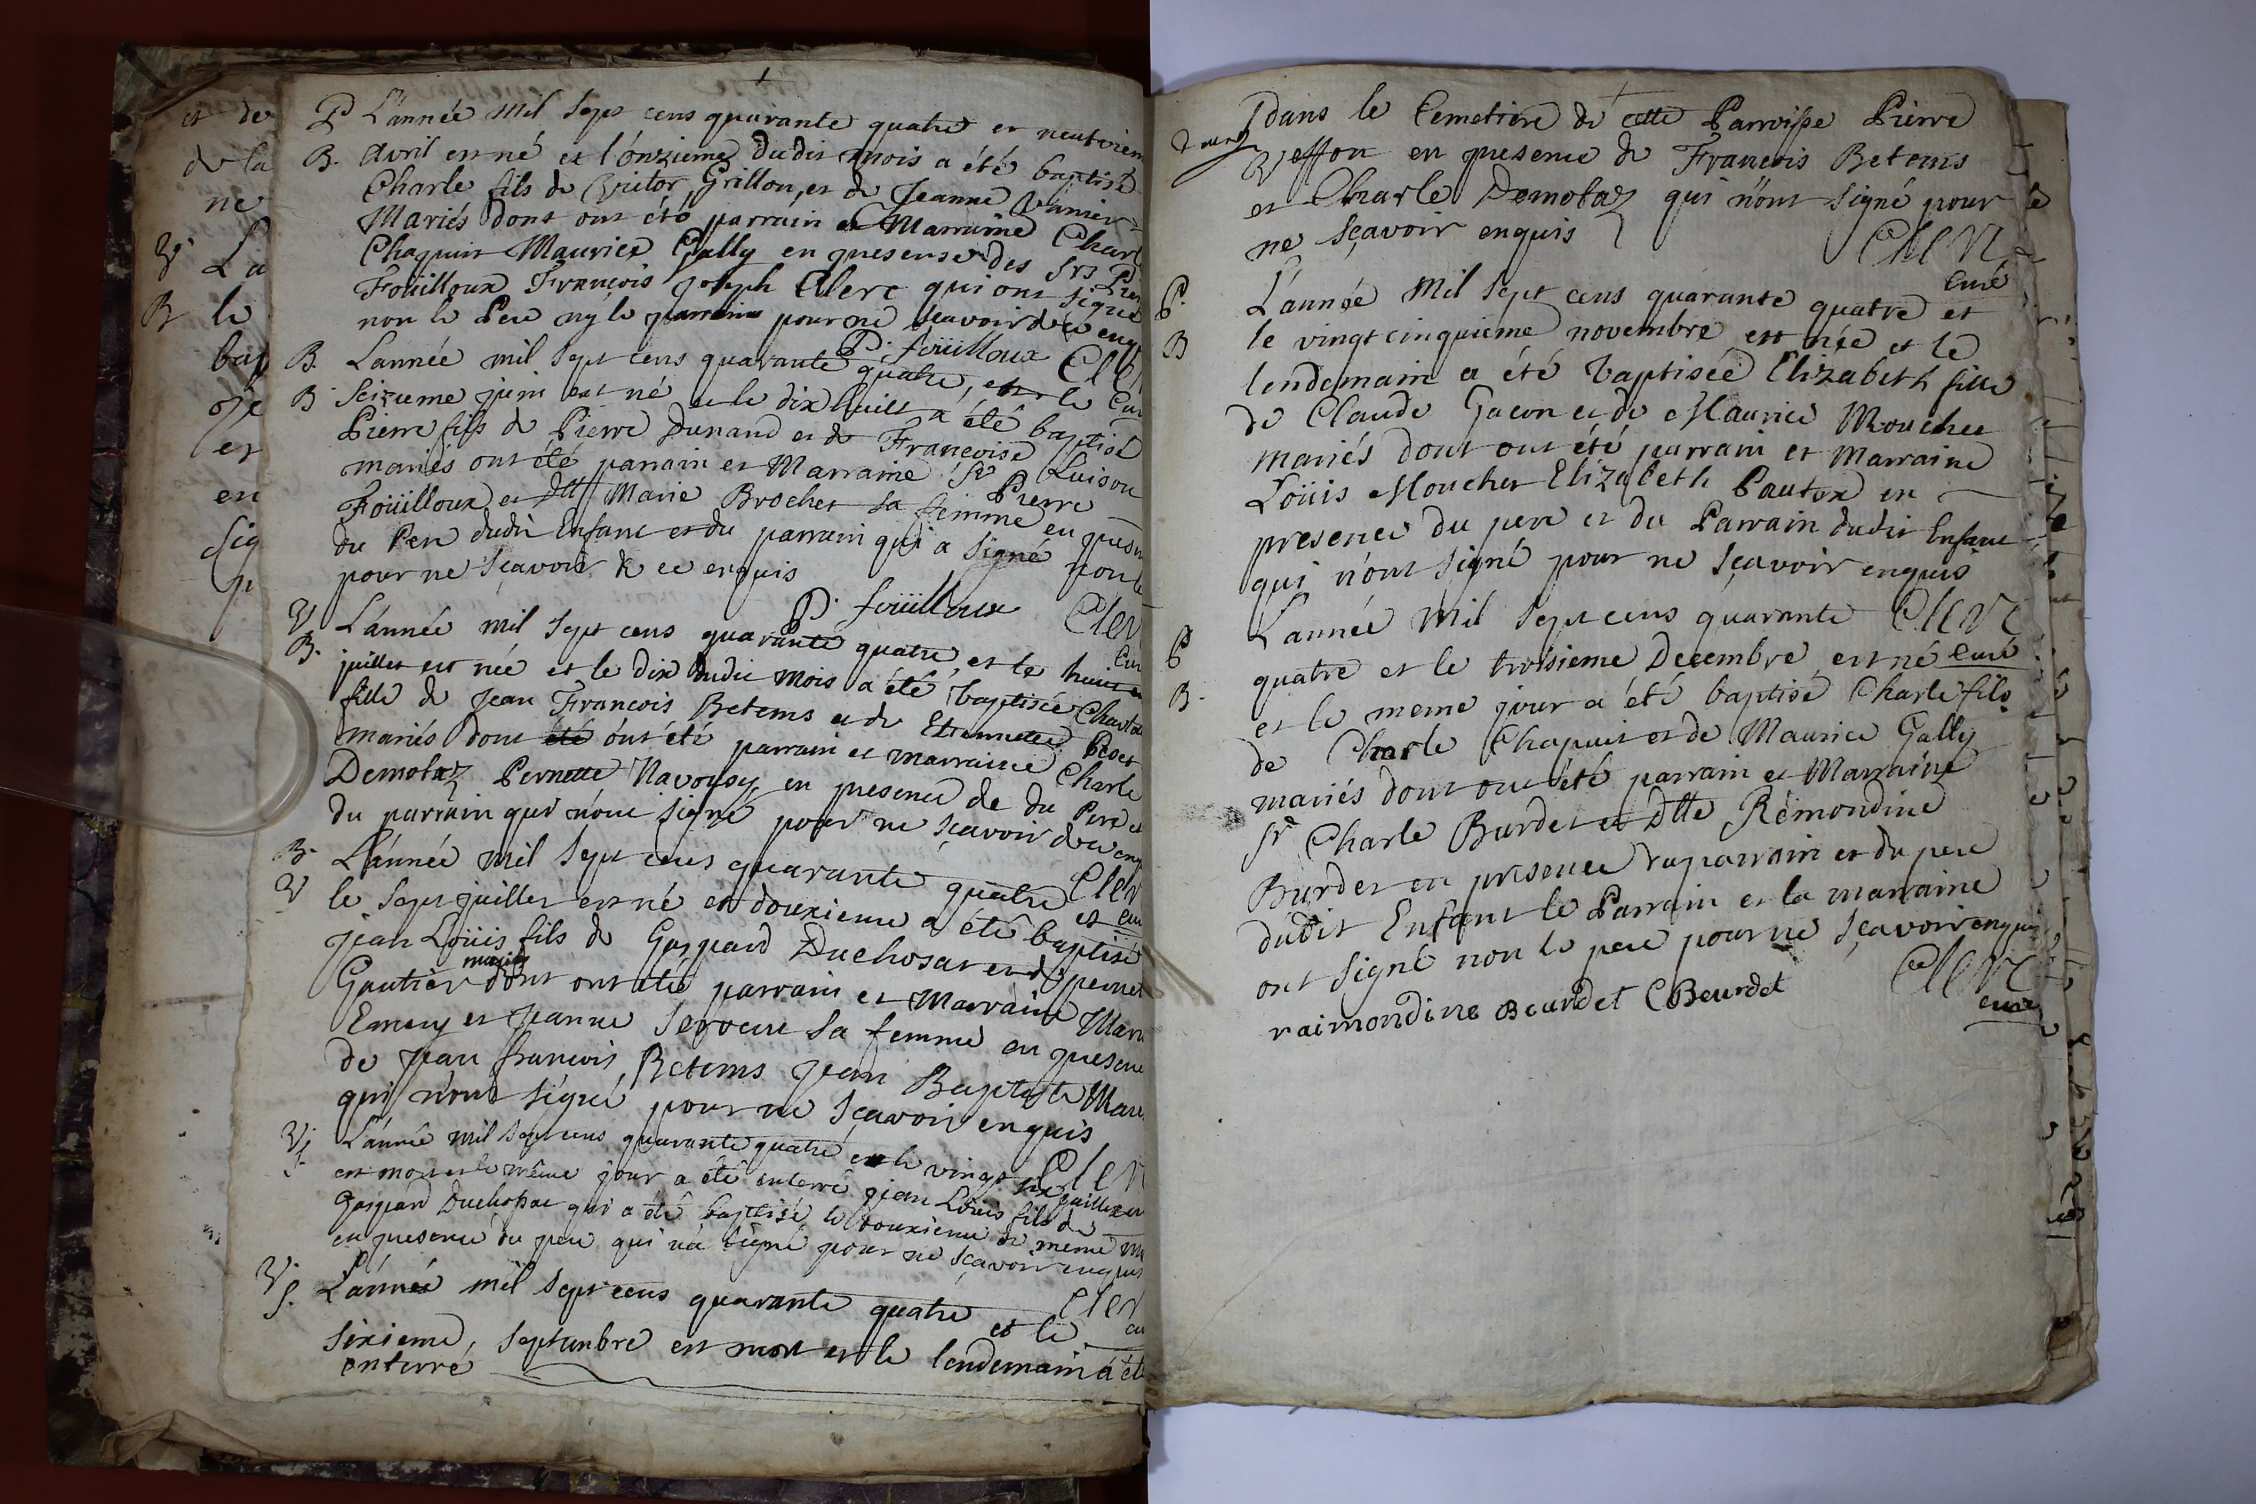 et de
de la
ne
La
le
bap
et
en
sig
P L'année mil sept cens quarante quatre et neuvieme
B. Avril est né et l'onzieme dudit mois a été baptisé
Charle fils de Victor Grillon, et de Jeanne
Mariés dont ont été parrain et Marraine Charle
Chapuis Maurice Gally en presense des Srs
Foüilloux François Joseph Clerc qui ont signé
non le Pere ny le parrain pour ne sçavoir de ce enquis
P. foüilloux Cler
B. L'année mil sept cens quarante quatre, et le cur
B Seizieme juin est né et le dix huict a été baptisé
Pierre fils de Pierre Dunand et de Françoise Luison
mariés ont été parrain et Marraine Sr Pierre
Foüilloux et Dlle Marie Brochet sa femme en presen
du Pere dudit Enfant et du parrain qui a signé non le
pour ne sçavoir de ce enquis
P. foüilloux Cler
V L'année mil sept cens quarante quatre, et le huict
B. juillet est née et le dix dudit mois a été baptisée Charlo
fille de Jean François Betems et de Etiennette
mariés dont été ont été parrain et marraine Charle
Demotaz Pernette Navoysy en presence de du Pere et
du parrain qui n'ont signé pour ne sçavoir de ce enq
Cler
B. L'année mil sept cens quarante quatre et cu
V le sept juillet est né et douxieme a été baptisé
Jean Loüis fils de Gaspard Duchosat et de pernet
mariés
Gautier dont ont été parrain et Marraine Mari
Emery et Jeanne Serveur sa femme en presence
de Jean françois Betems Jean Baptiste Mar
qui n'ont signé pour ne sçavoir enquis
Cler
V L'année mil sept cens quarante quatre et le vingt six juillet
S. est mort et le même jour a été enterré jean Loüis fils de
Gaspard Duchosat qui a été baptisé le douxieme du meme m
en presence du pere qui n'a signé pour ne sçavoir enquis
Cler
V. L'année mil sept cens quarante quatre et le cu
S. sixieme, septembre est mort et le lendemain a été
enterré
dans le Cemetiere de cette Parroisse Pierre
Veffon en presence de François Betems
et Charle Demotaz qui n'ont signé pour
ne sçavoir enquis Clerc
curé
P. L'année Mil sept cens quarante quatre et
B le vingt cinquieme novembre est née et le
lendemain a été baptisée Elizabeth fille
de Claude Gacon et de Maurice Mouchet
mariés dont ont été parrain et Marraine
Loüis Mouchet Elizabeth Pautex en
presence du pere et du Parrain dudit Enfant
qui n'ont signé pour ne sçavoir enquis
P L'année Mil sept cens quarante Clerc
quatre et le troisieme Decembre est né curé
B. et le meme jour a été baptisé Charle fils
de Charle Chapuis et de Maurice Gally
mariés dont ont été parrain et Marraine
Sr Charle Burdet et Dlle Rémondine
Burdet en presence du parrain et du pere
dudit Enfant le Parrain et la marraine
ont signé non le pere pour ne sçavoir enquis
raimondine Beurdet CBeurdet Clerc
curé